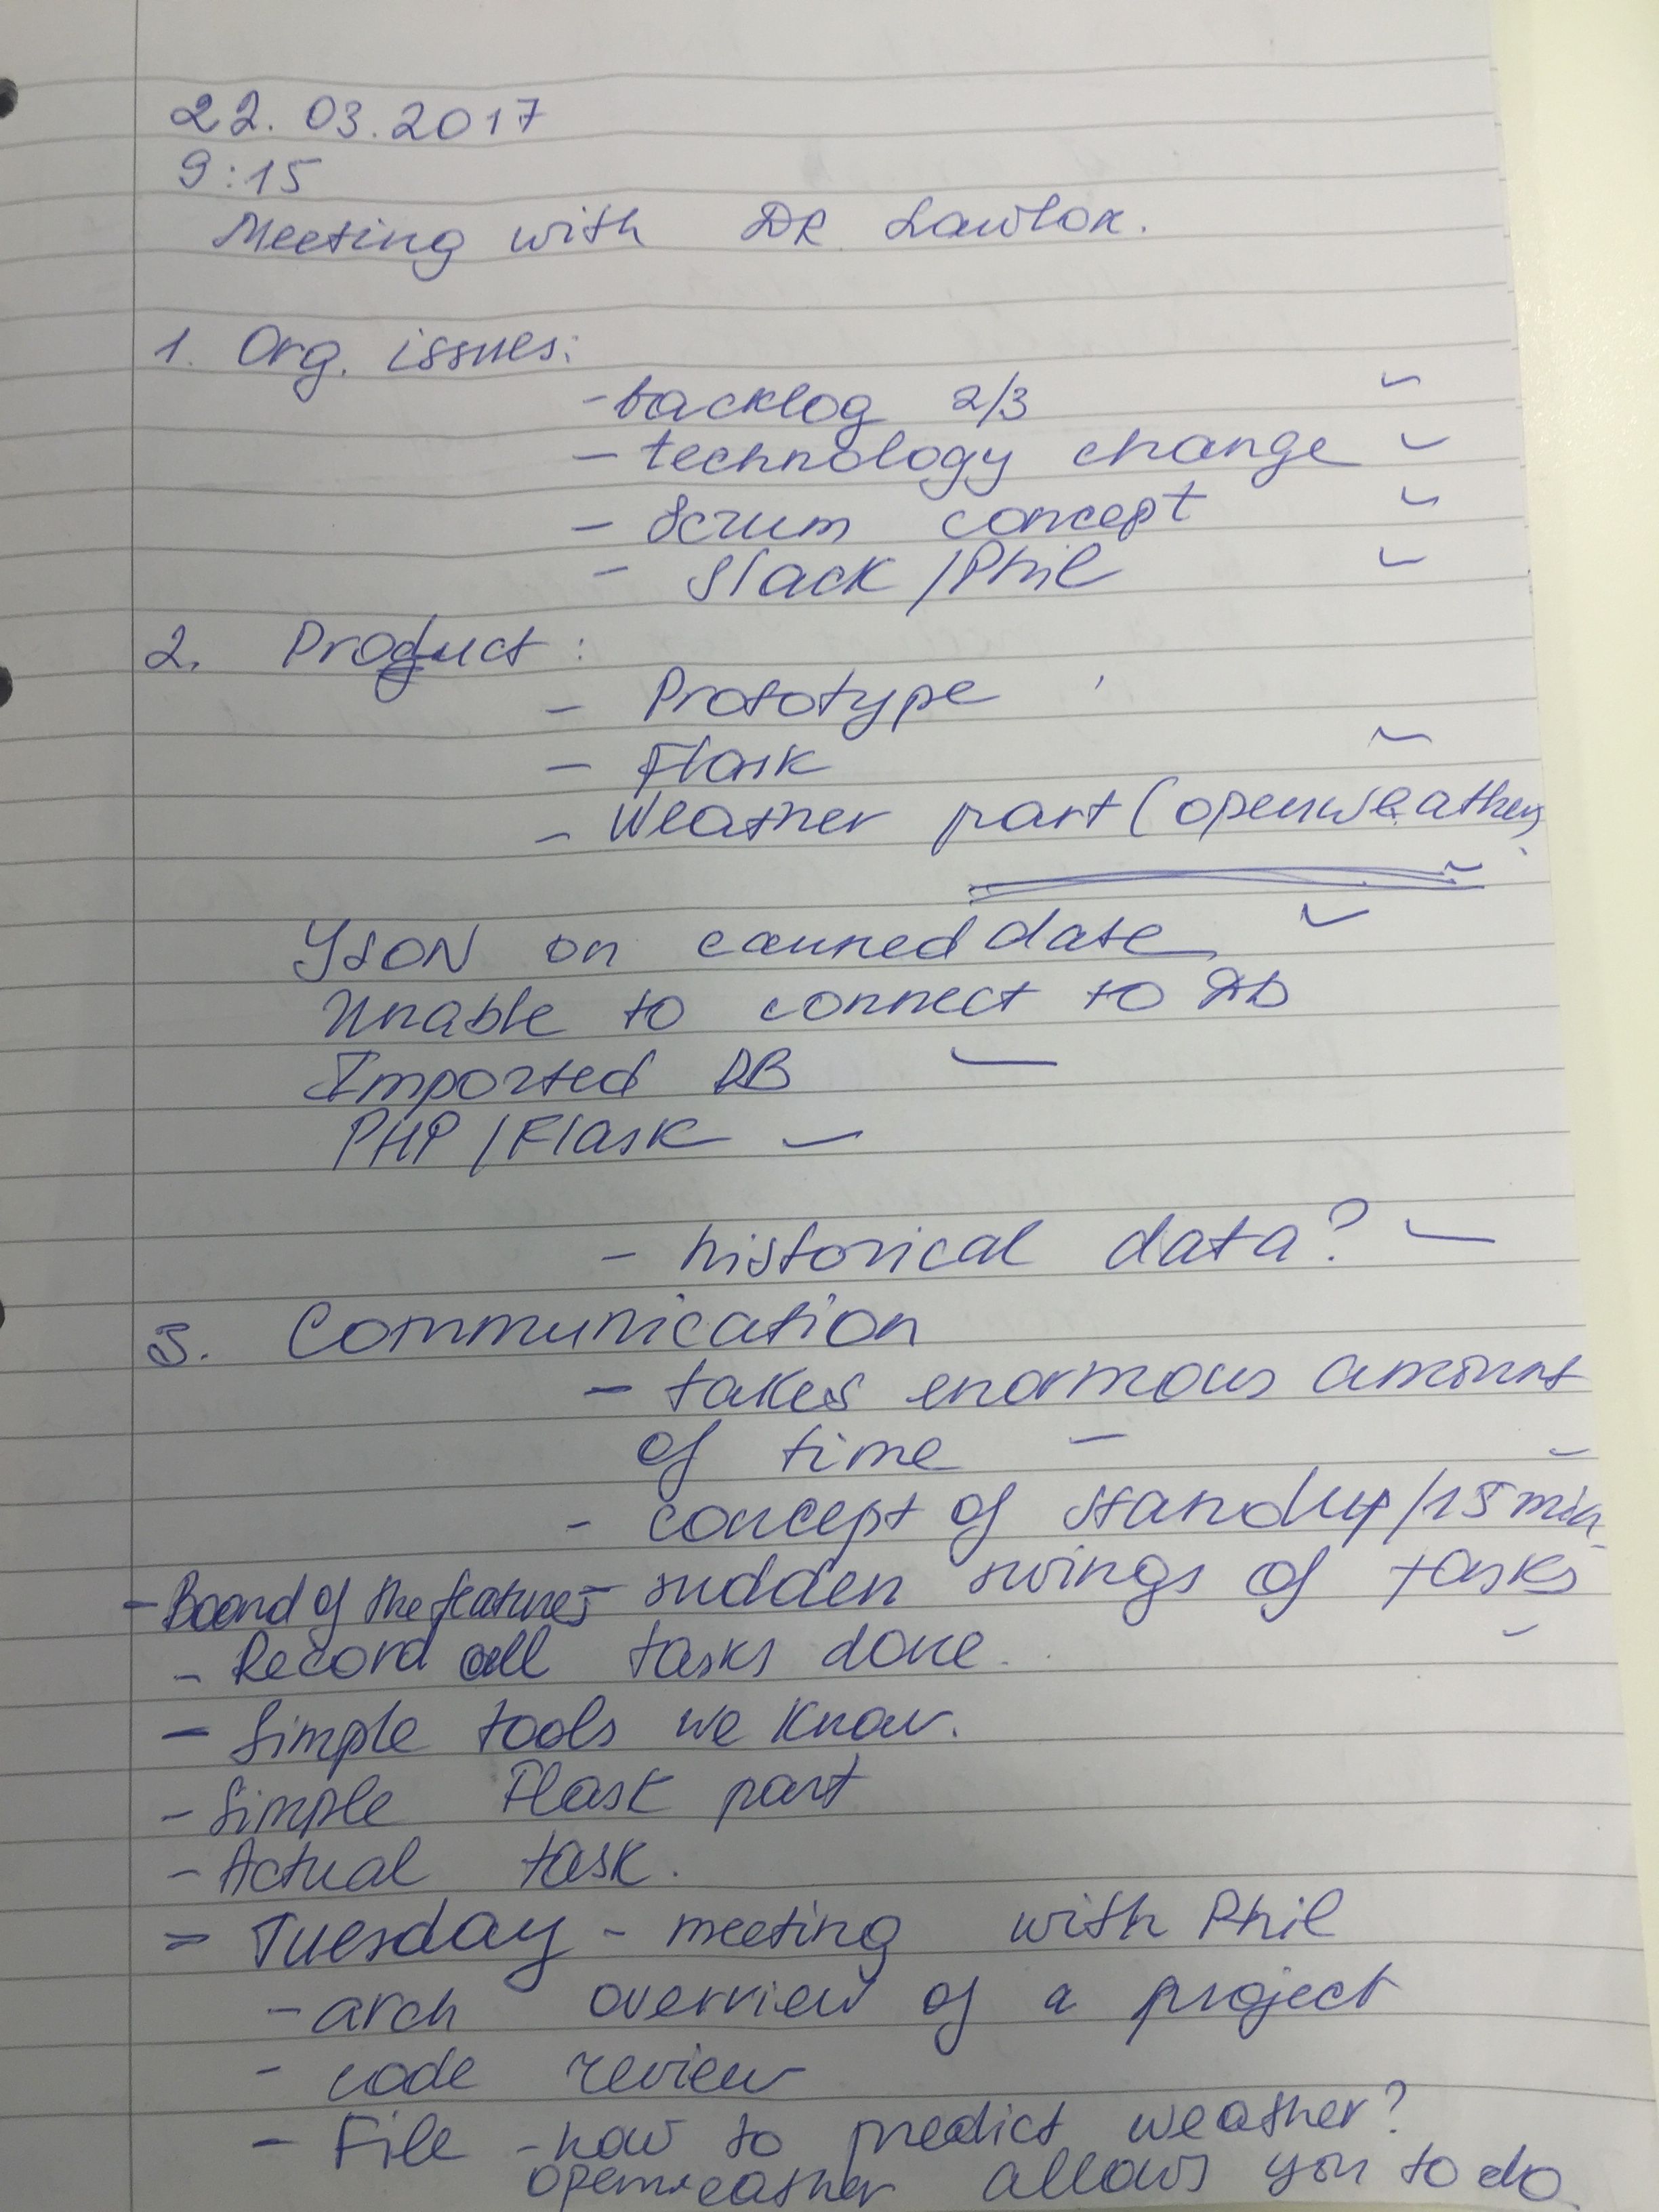 22.03.2017
9:15
Meeting with DR Lawlor.
1. Org. issues:
- backlog 2/3
- technology change
- Scrum concept
- Slack / Phil
2. Product:
- Prototype
- Flask
- Weather part (openweather)
JSON on canned date
Unable to connect to DB
Imported DB
PHP / Flask
- historical data?
3. Communication
- takes enormous amount
of time
- concept of standup / 15 min
- sudden swings of tasks
- Board of the features
- Record all tasks done.
- Simple tools we know.
- Simple Flask part
- Actual task.
= Tuesday - meeting with Phil
- arch overview of a project
- code review
- File - how to predict weather?
openweather allows you to do